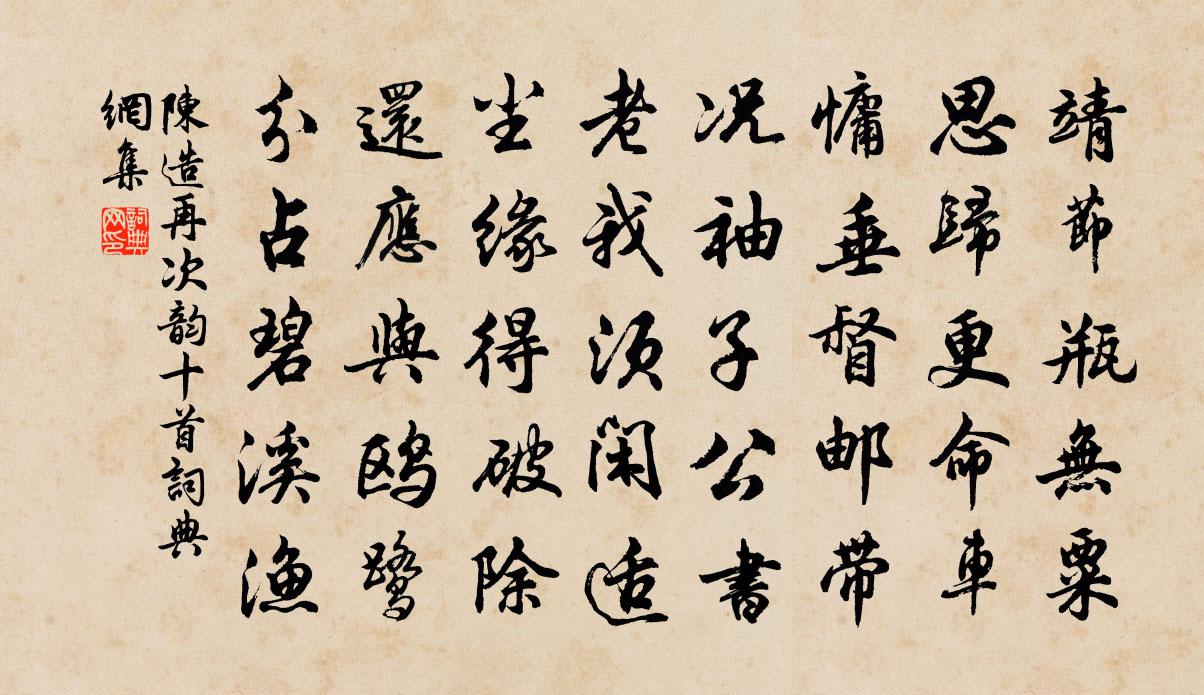 靖節瓶無粟
思歸更命車
慵垂督邮帶
况袖子公書
老我須閑适
坐緣得破除
還應與鸥鹭
分占碧溪漁
陳造再次韵十首詞典
網集
詞典網印